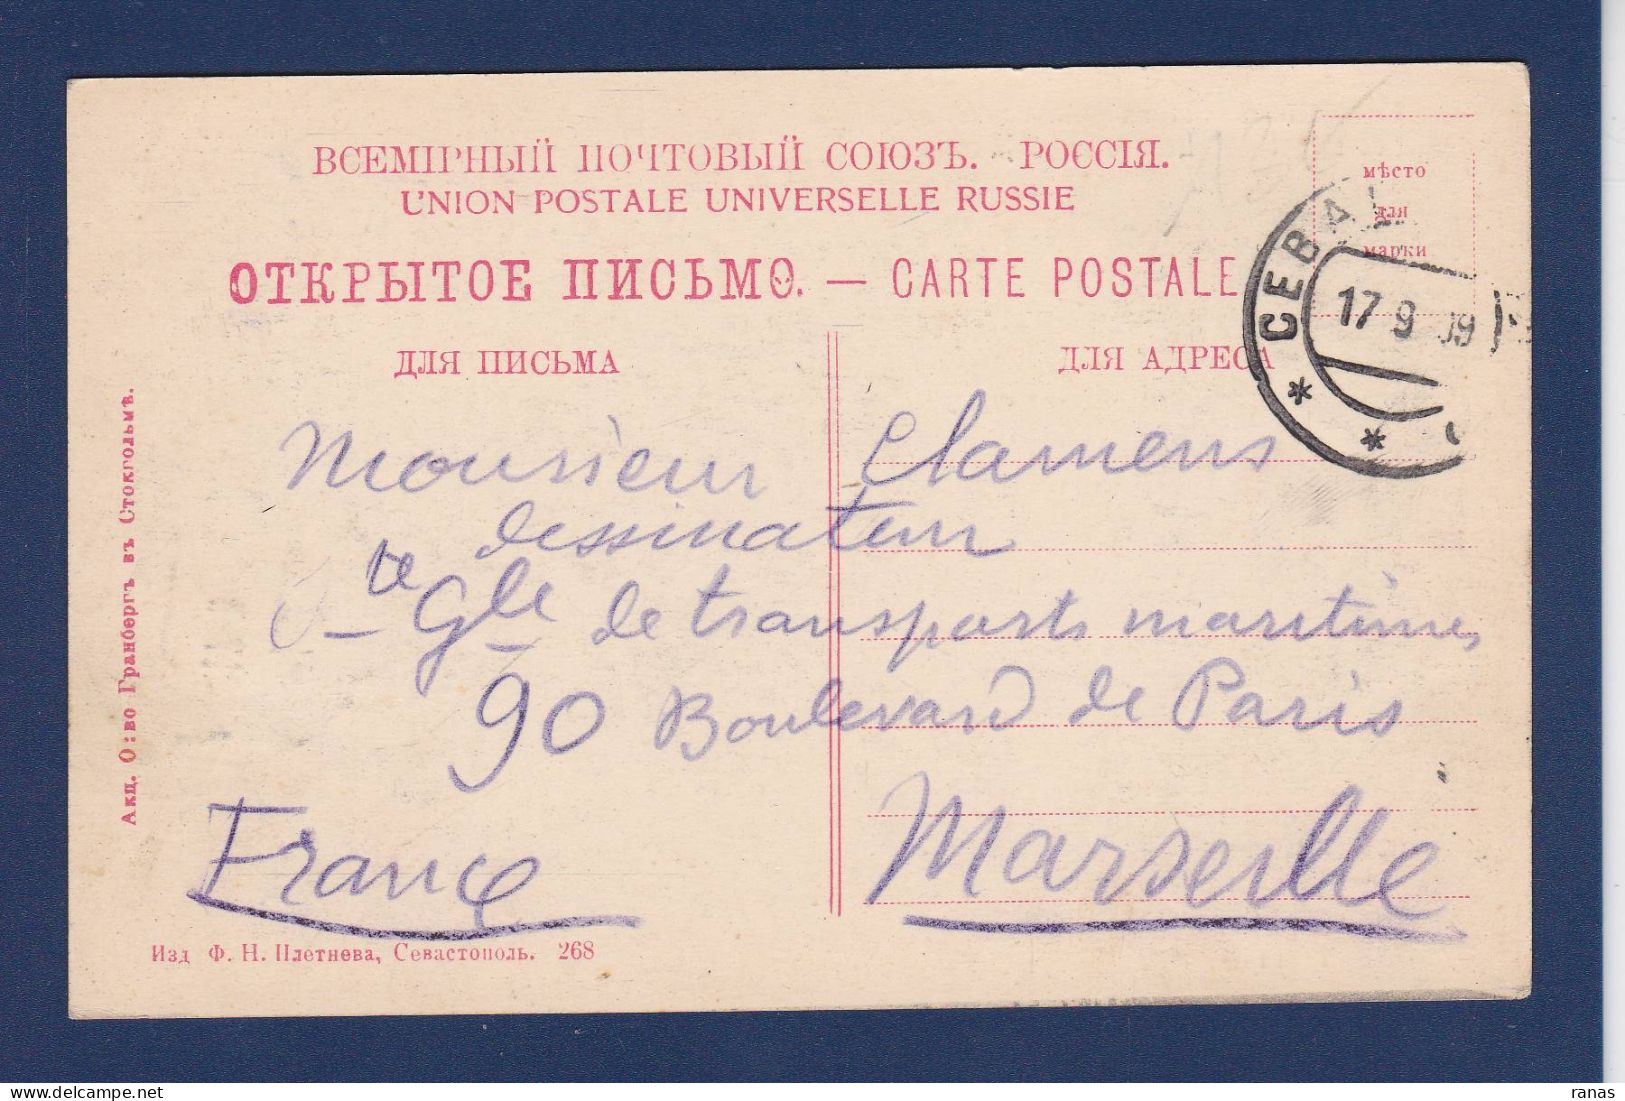 ВСЕМІРНЫЙ ПОЧТОВЫЙ СОЮЗЪ. РОССІЯ.
UNION POSTALE UNIVERSELLE RUSSIE
ОТКРЫТОЕ ПИСЬМО. — CARTE POSTALE
мѣсто
для
марки
СЕВА
17 9 09
ДЛЯ ПИСЬМА
ДЛЯ АДРЕСА
Monsieur Clamens
dessinateur
Cte Gle de transports maritimes
90 Boulevard de Paris
France
Marseille
Изд Ф. Н. Плетнева, Севастополь. 268
Акц. О:во Гранбергъ въ Стокгольмѣ.
ranas